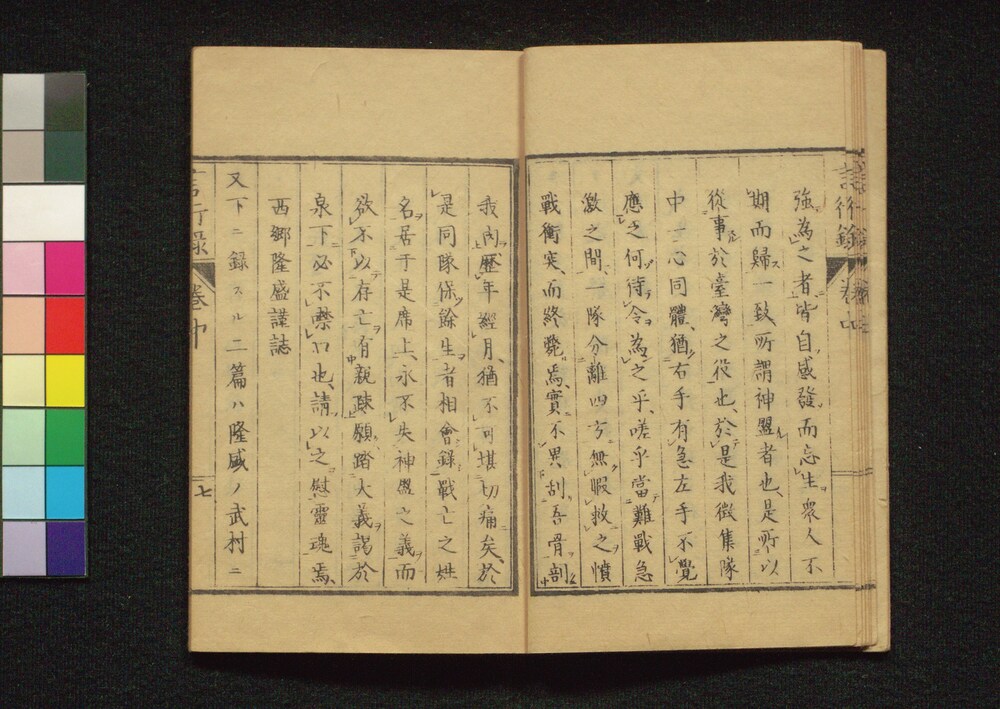 強為之者皆自感發而忘生衆人不
期而歸一致所謂神盟者也是所以
從事於臺灣之役也、於是我徴集隊
中一心同體、猶右手有急左手不覺
應之何待令為之乎、嗟乎當難戰急
激之間、一隊分離四方無暇救之憤
戰衝突、而終斃焉、實不異刮吾骨剖
我肉歴年經月、猶不可堪切痛矣、於
是同隊保餘生者相會錄戰亡之姓
名居于是席上、永不失神盟之義而
欲不以存亡有親疎願踏大義謁於
泉下必不懸口也、請以之慰靈魂焉、
西郷隆盛謹誌
又下ニ錄スル二篇ハ隆盛ノ武村ニ
言行錄 卷中
七